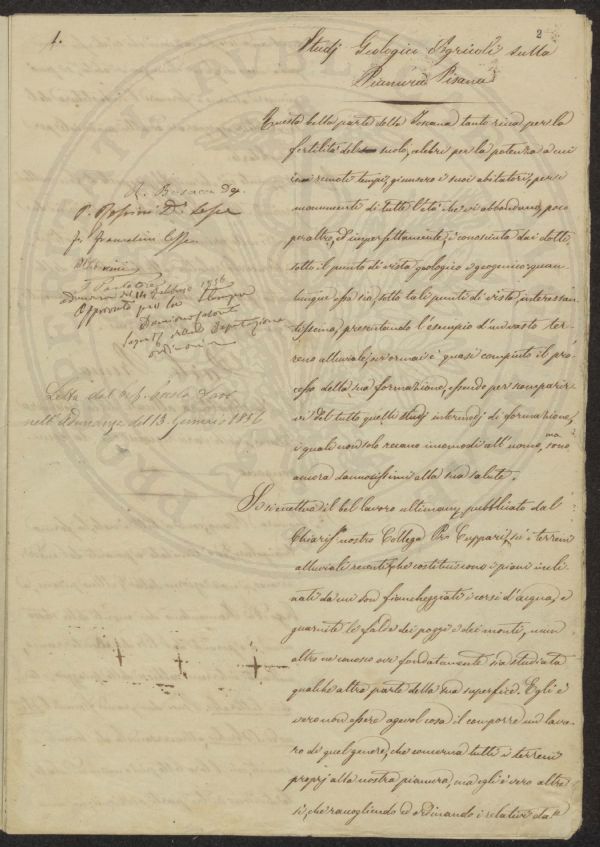 1.
2
Studj Geologici Agricoli sulla
Pianura Pisana
Questa bella parte della Toscana tanto ricca per la
fertilità del suolo, celebre per la potenza a cui
in remoti tempi, giunsero i suoi abitatori, per i
monumenti di tutte l'età che vi abbondano, poco
peraltro, ed imperfettamente, è conosciuta dai dotti,
sotto il punto di vista geologico e geogenico: quan
tunque essa sia, sotto tali punti di vista, interessan
tissima, presentando l'esempio d'un vasto ter-
reno alluviale, ove ormai è quasi compiuto il pro-
cesso della sua formazione, essendo per scomparir-
vi del tutto quelli studj intermedj di formazione,
i quali non solo recano incomodi all'uomo, ma sono
ancora dannosissimi alla sua salute.
Se si eccettua il bel lavoro ultimamen. pubblicato dal
Chiariss. nostro Collega Pro. Cuppari, su i terreni
alluviali recenti, che costituiscono i piani incli
nati da cui son fiancheggiati i corsi d'acqua, e
guarnite le falde dei poggi e dei monti, niun
altro ne conosco ove fondatamente sia studiata
qualche altra parte della sua superfice. Egli è
vero non essere agevol cosa il comporre un lavo-
ro di quel genere, che concerna tutti i terreni
proprj alla nostra pianura, ma egli è vero altre
sì, che raccogliendo ed ordinando i relativi da-
R. Busacca
P. Passerini
Approvato per la Stampa
Letta dal Prof. Paolo Savi
nell'Adunanza del 13 Gennaio 1856